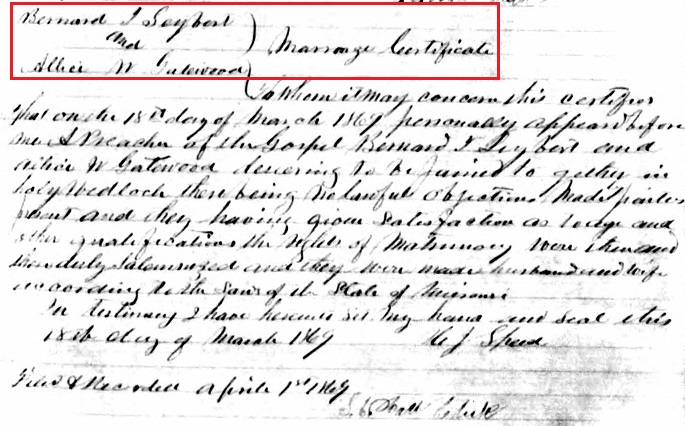 Bernard T Seybert
And
Allice W Gatewood
Marrage Certificate
To Whom it may concern this certifies
that on the 18th day of March 1869 personally appeared before
me A Preacher of the Gospel Bernard T Seybert and
Allice W Gatewood desiering to be joined to gether in
holy Wedlock there being no lawful objections Made parties
present and they having given satisfaction as to age and
other qualifications the rights of Matrimony were then and
there duly solemnized and they were made husband and wife
according to the Laws of the State of Missouri
In testimony I have hereunto set my hand and seal this
18th day of March 1869 J Speed
Filed & Recorded April 1st 1869
Clerk